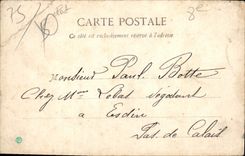 75
8e
CARTE POSTALE
Ce côté est exclusivement réservé à l'adresse
Monsieur Paul Botte
Chez Mme Lebas Négociant
à Esdin
Pas. de Calais